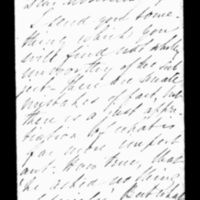 I send you some-
thing which you
will find not wholly
unworthy of the sub-
ject. There are small
mistakes of fact, but
there is a just appre-
ciation of what is
far more import-
ant. How true, that
he asked nothing